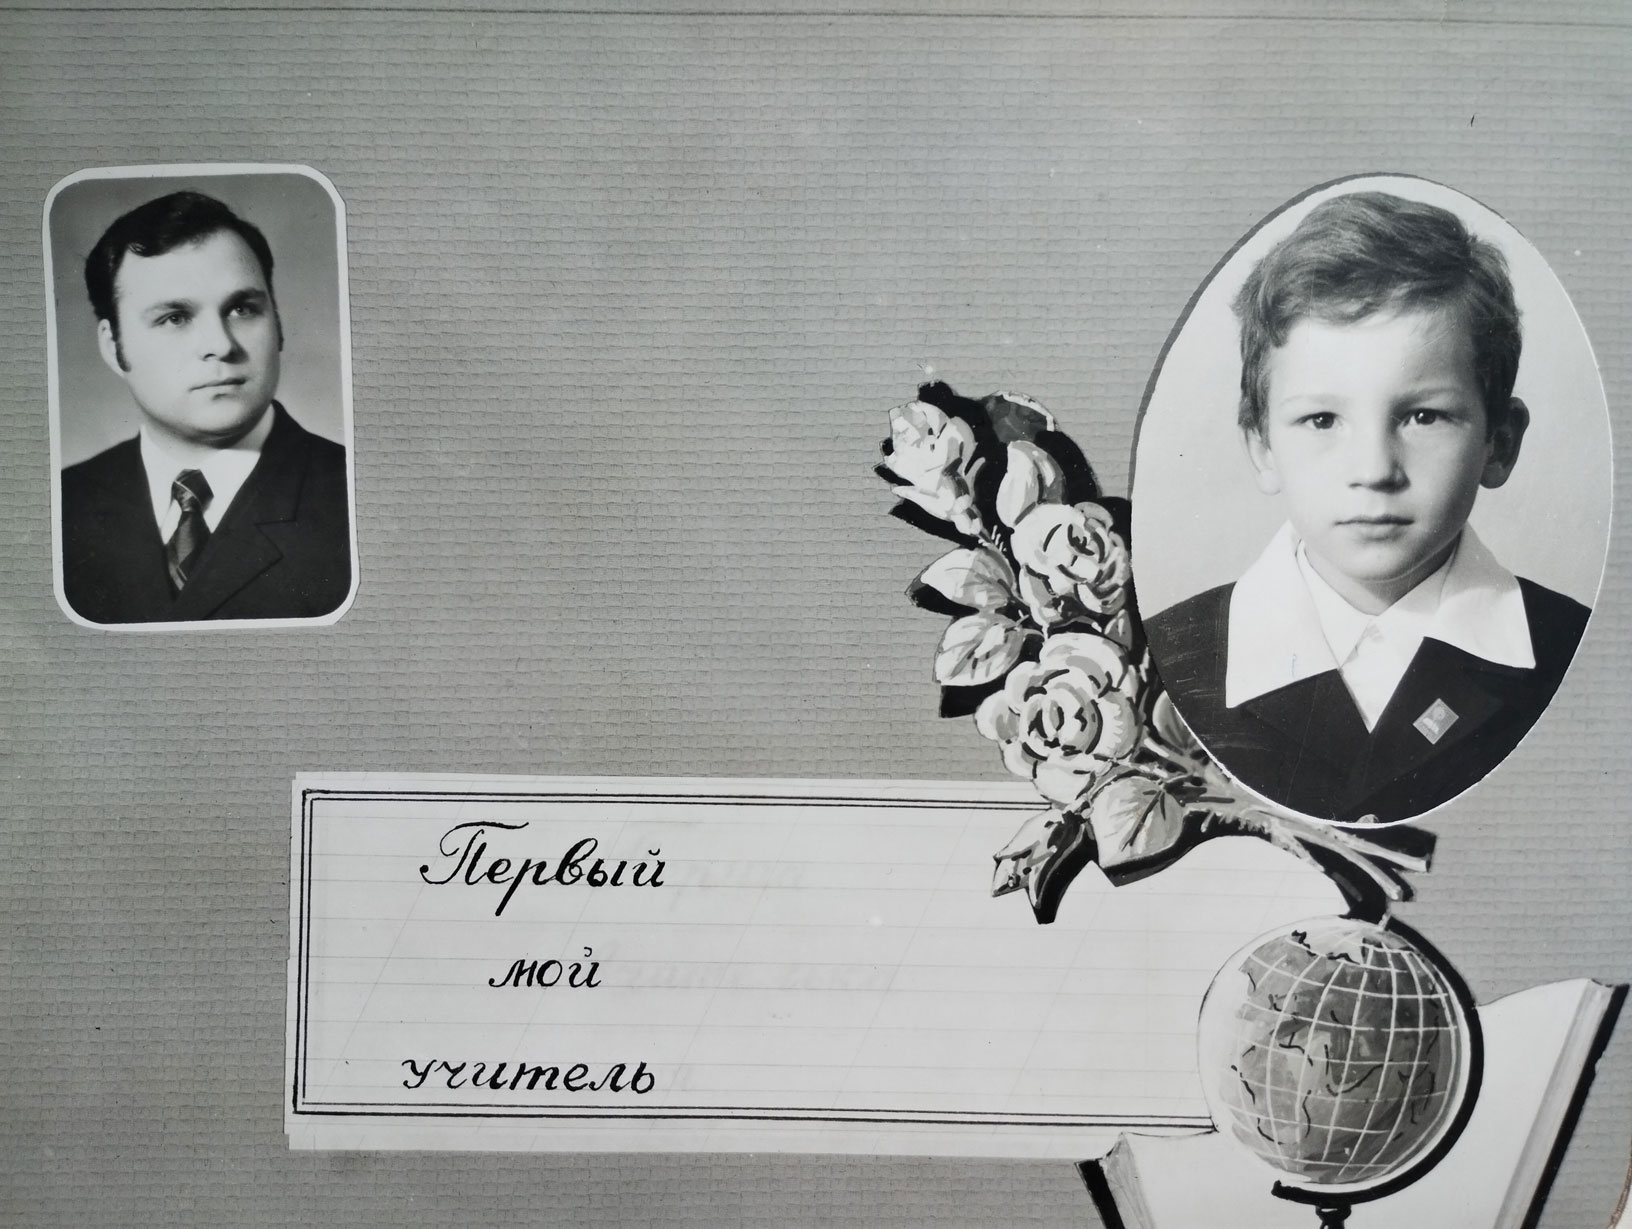 Первый
мой
учитель